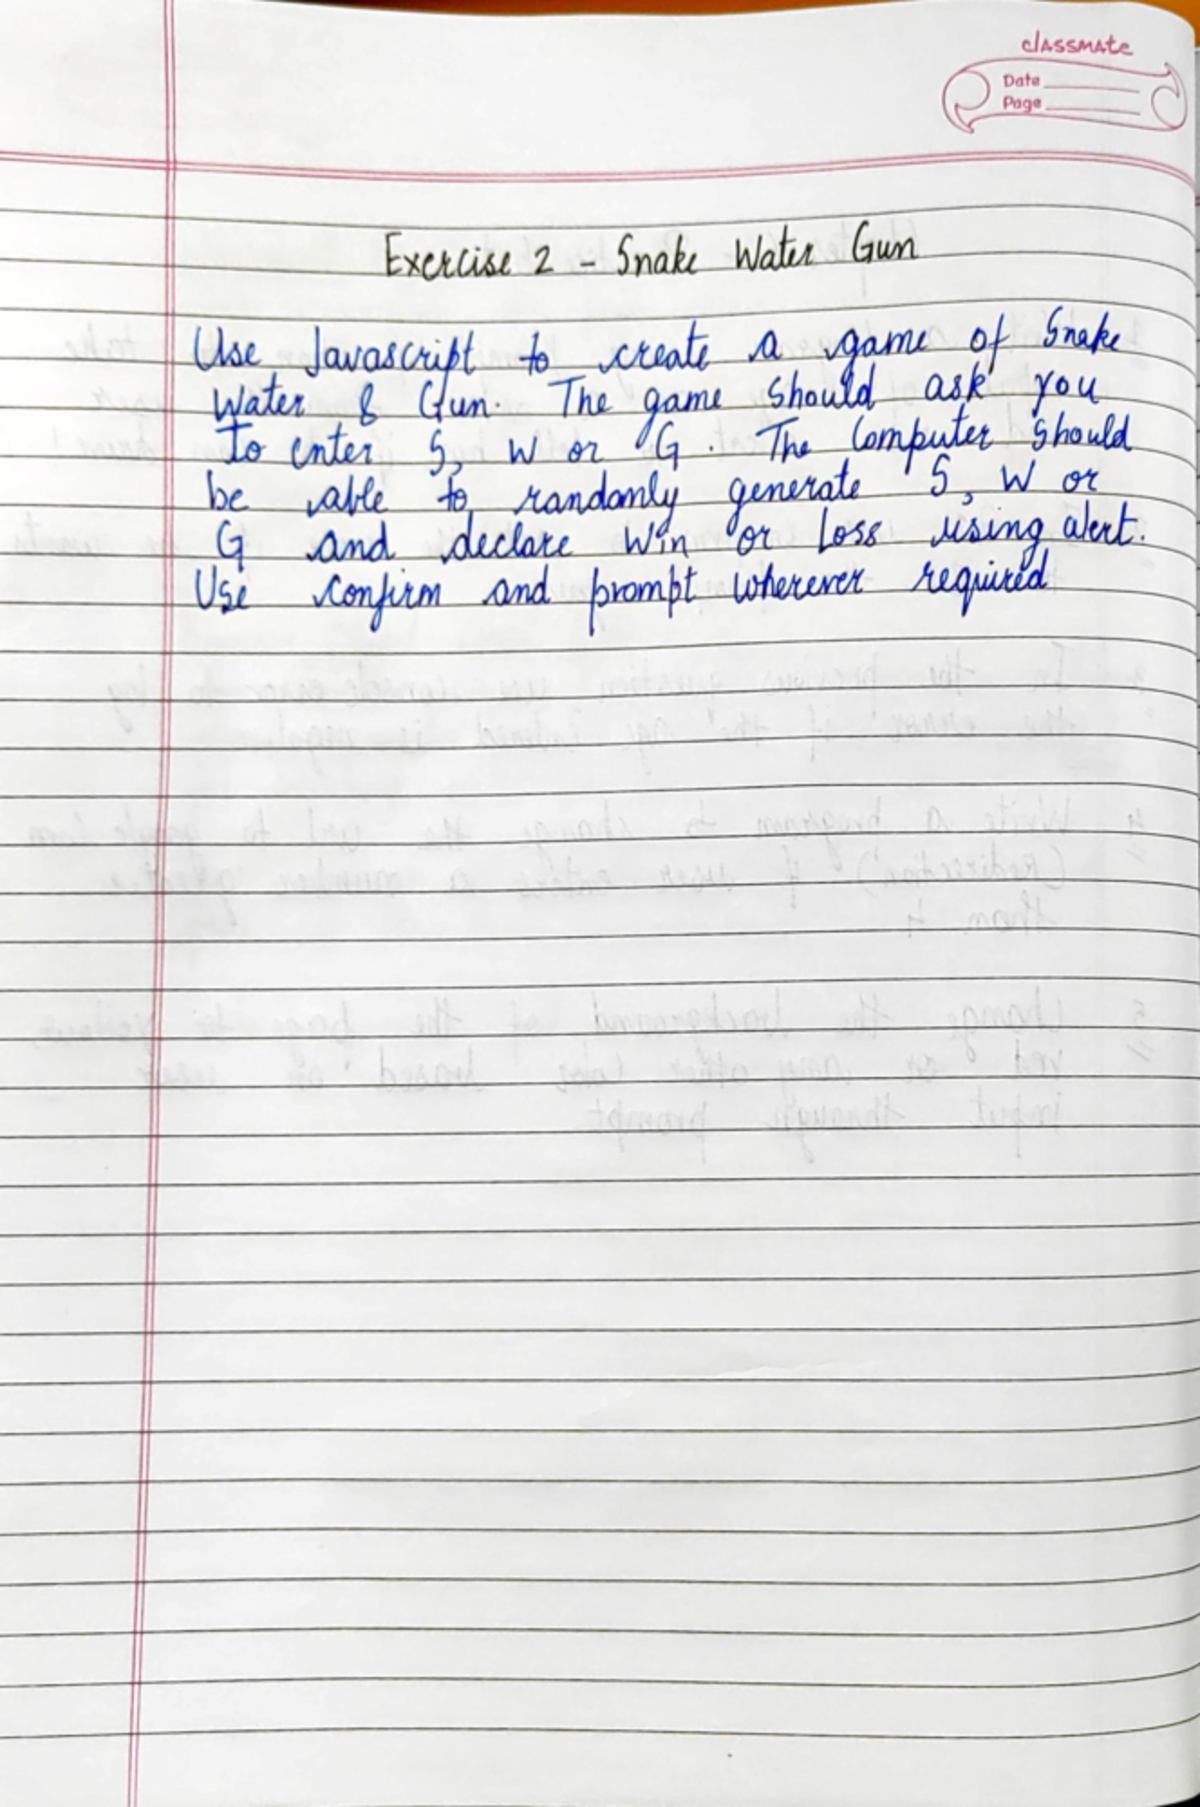 classmate
Date
Page
Exercise 2 - Snake Water Gun
Use Javascript to create a game of Snake
Water & Gun. The game should ask you
to enter S, W or G. The Computer should
be able to randamly generate S, W or
G and declare Win or Loss using alert.
Use confirm and prompt wherever required